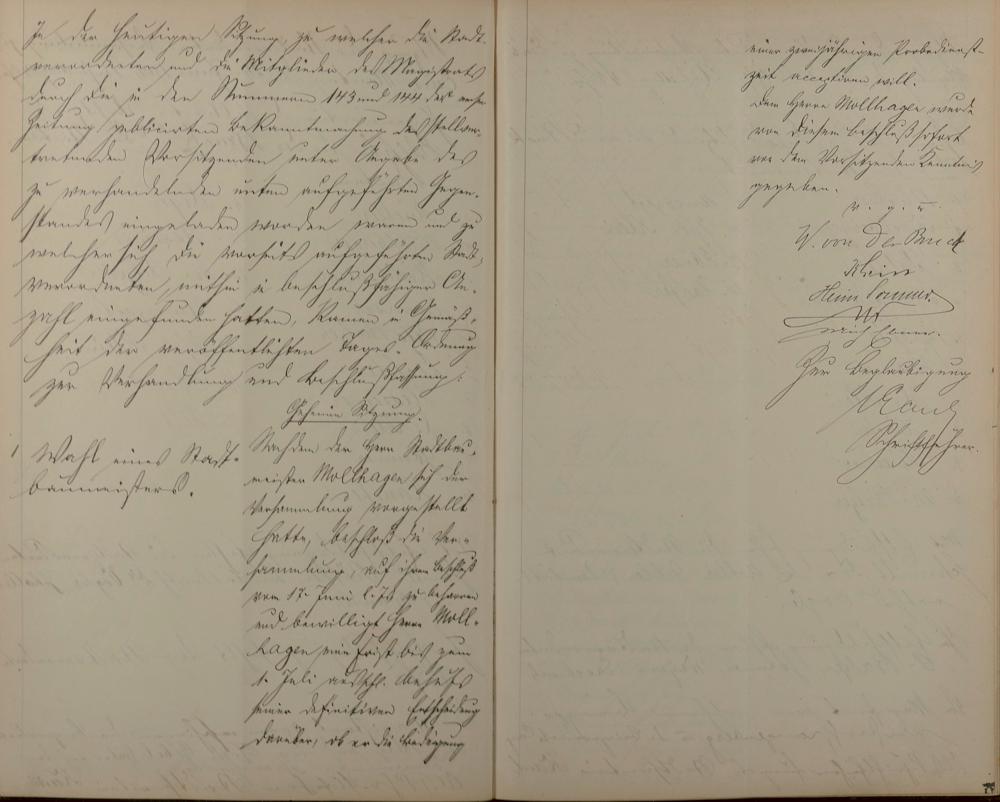 In der heutigen Sitzung, zu welcher die Stadt-
verordneten und die Mitglieder des Magistrats
durch die in den Nummern 143 und 144 der
Zeitung publicirten Bekanntmachung des stellver-
tretenden Vorsitzenden unter Angabe des
zu verhandelnden unten aufgeführten Gegen-
standes eingeladen worden waren und zu
welcher sich die vorseits aufgeführten Stadt-
verordneten, mithin in beschlußfähiger An-
zahl eingefunden hatten, kamen in Gemäß-
heit der veröffentlichten Tages-Ordnung
zur Verhandlung und Beschlußfassung:
Geheime Sitzung.
1 Wahl eines Stadt-
baumeisters.
Nachdem der Herr Stadtbau-
meister Mollhagen sich der
Versammlung vorgestellt
hatte, beschloß die Ver-
sammlung, auf ihrem Beschluß
vom 17. Juni l. Js. zu beharren
und bewilligt Herrn Moll-
hagen eine Frist bis zum
1. Juli behufs
seiner definitiven Entscheidung
darüber, ob er die Bedingung
einer zweijährigen Probedienst-
zeit acceptiren will.
Dem Herrn Mollhagen wurde
von diesem Beschluß sofort
von dem Vorsitzenden Kenntniß
gegeben.
v. g. u.
W. von der
Klein
Zur Beglaubigung
Schriftführer.